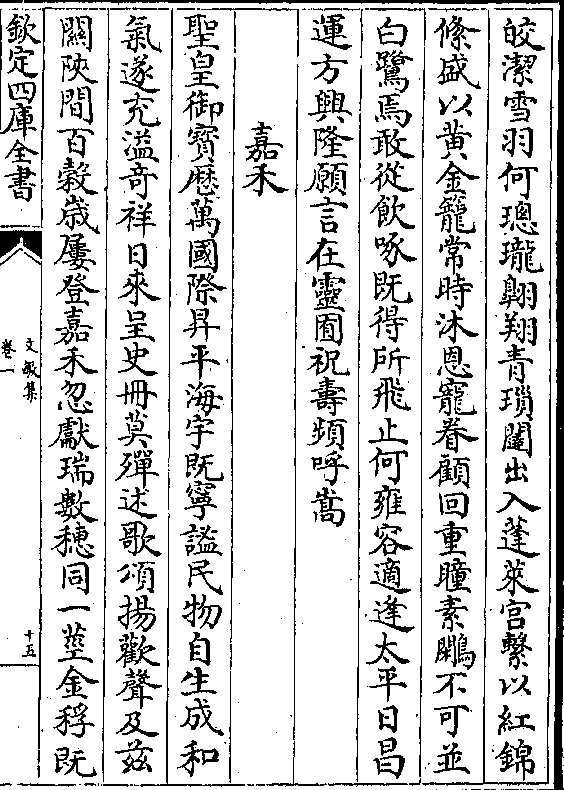 皎潔雪羽何璁瓏翺翔青瑣闥出入蓬萊宫繫以紅錦
絛盛以黄金籠常時沐恩寵眷顧回重瞳素鷴不可並
白鷺焉敢從飲啄既得所飛止何雍容適逢太平日昌
運方興隆願言在靈囿祝壽頻呼嵩
嘉禾
聖皇御寳厯萬國際昇平海宇既寧謐民物自生成和
氣遂充溢竒祥日來呈史冊莫殫述歌頌揚歡聲及兹
關陜間百穀歳屢登嘉禾忽獻瑞數穗同一莖金稃既
欽定四庫全書
文敏集
卷一
十五